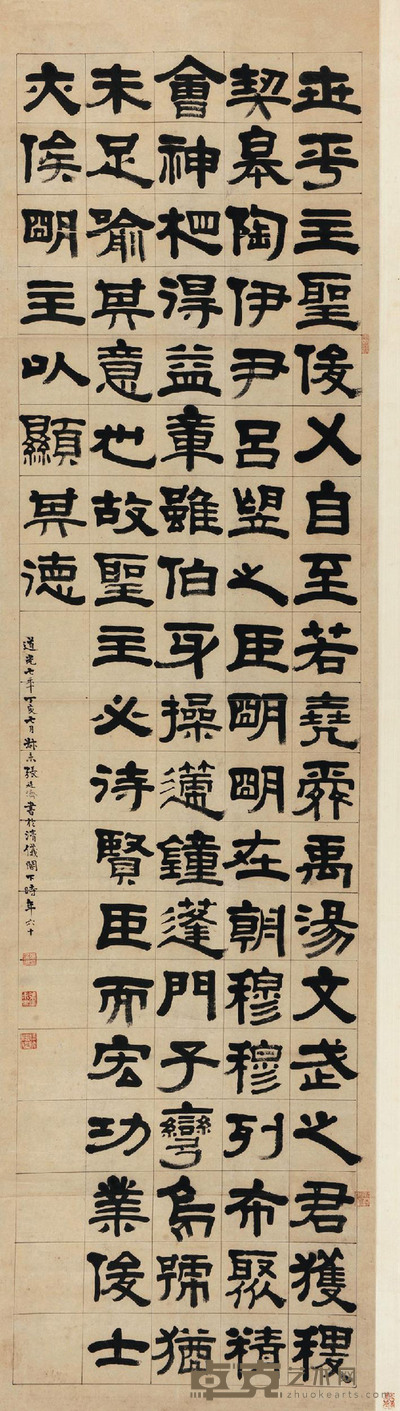 世平主聖俊乂自至若堯舜禹湯文武之君獲稷
契皋陶伊尹呂望之臣明明在朝穆穆列布聚精
會神相得益章雖伯牙操鐘蓬門子彎烏號猶
未足喻其意也故聖主必待賢臣而宏功業俊士
亦俟明主以顯其德
道光七年丁亥七月叔未張廷濟書於清儀閣下時年六十
卓克艺术网
zhuokearts.com